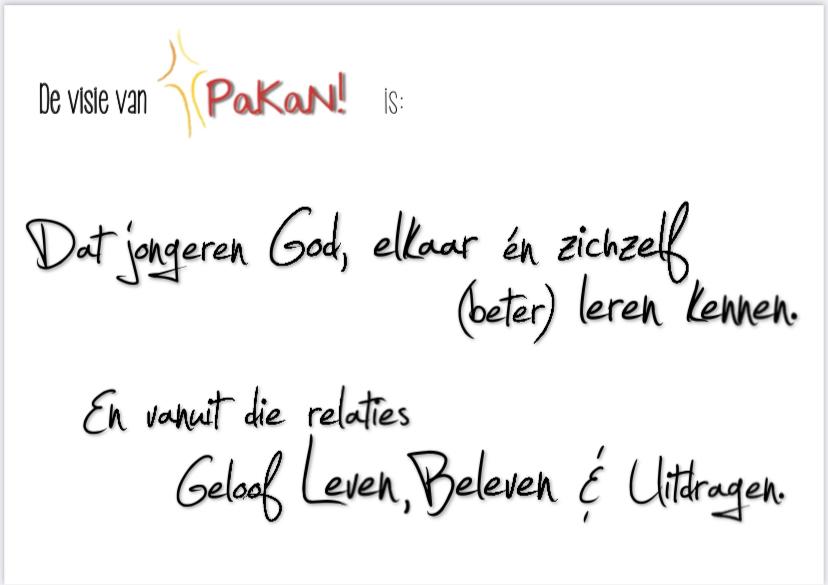 De visie van PaKaN! is:
Dat jongeren God, elkaar én zichzelf
(beter) leren kennen.
En vanuit die relaties
Geloof Leven, Beleven & Uitdragen.